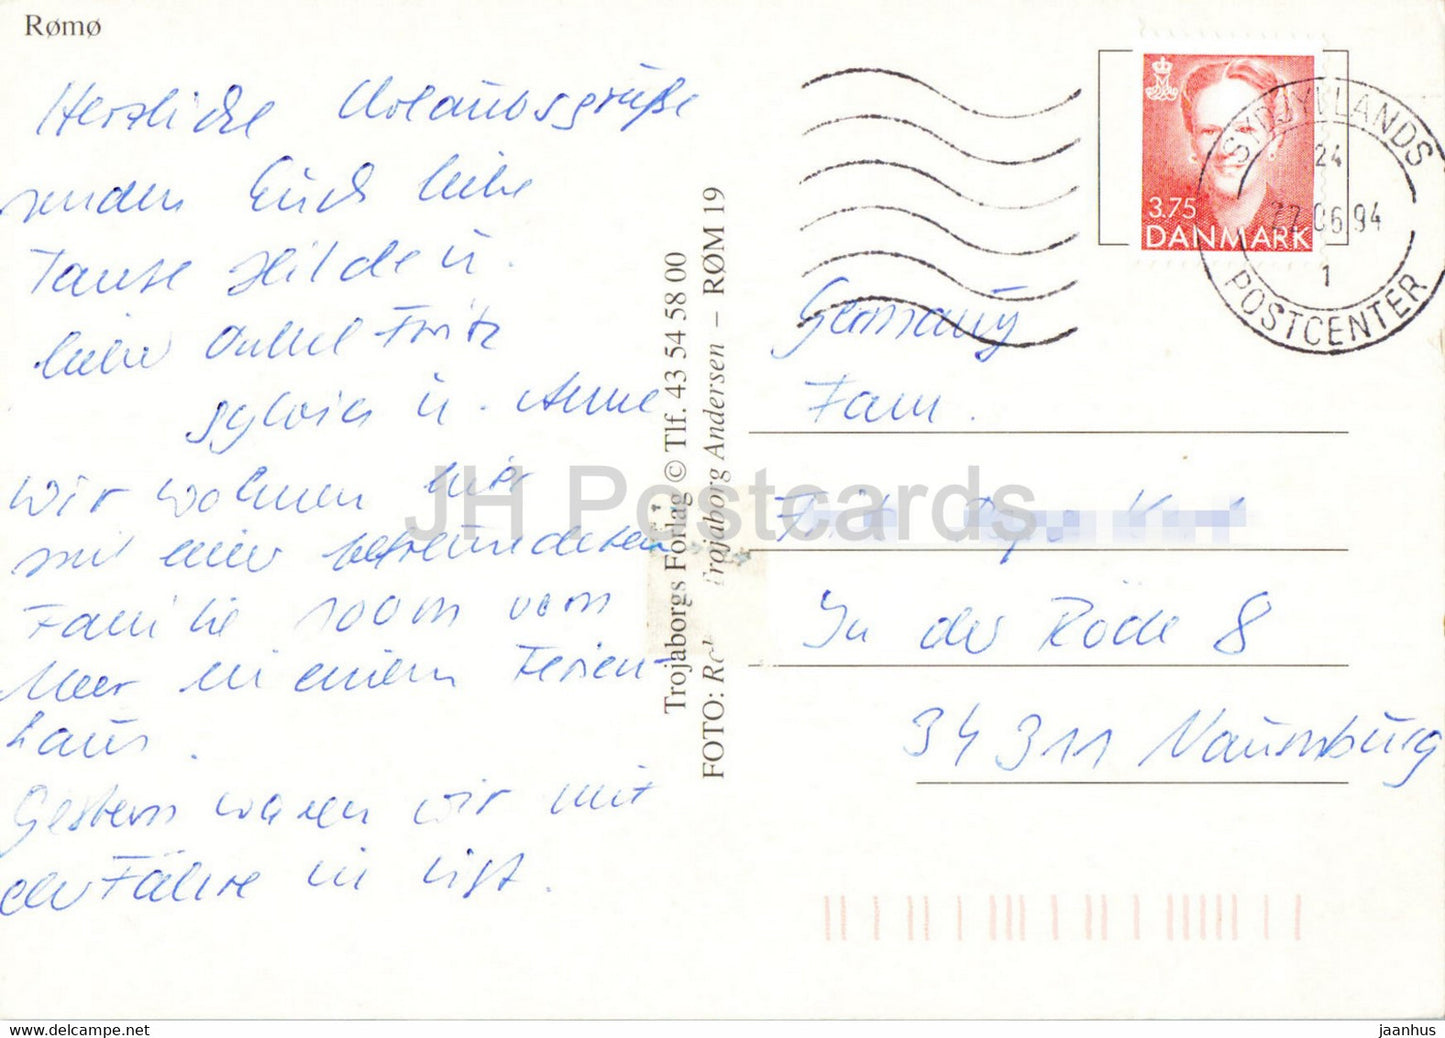 Rømø
Herzliche Urlaubsgrüße
senden Euch liebe
Tante Hilde u.
lieber Onkel Fritz
Sylvia u. Anne
Wir wohnen hier
mit einer befreundeten
Familie 100m vom
Meer in einem Ferien-
haus.
Gestern waren wir mit
der Fähre in List.
Trojaborgs Forlag © Tlf. 43 54 58 00
FOTO: Trojaborg Andersen – RØM 19
3.75
DANMARK
SYDJYLLANDS
24
06.94
1
POSTCENTER
Germany
Fam.
In der Röde 8
34311 Naumburg
JH Postcards
www.delcampe.net
jaanhus